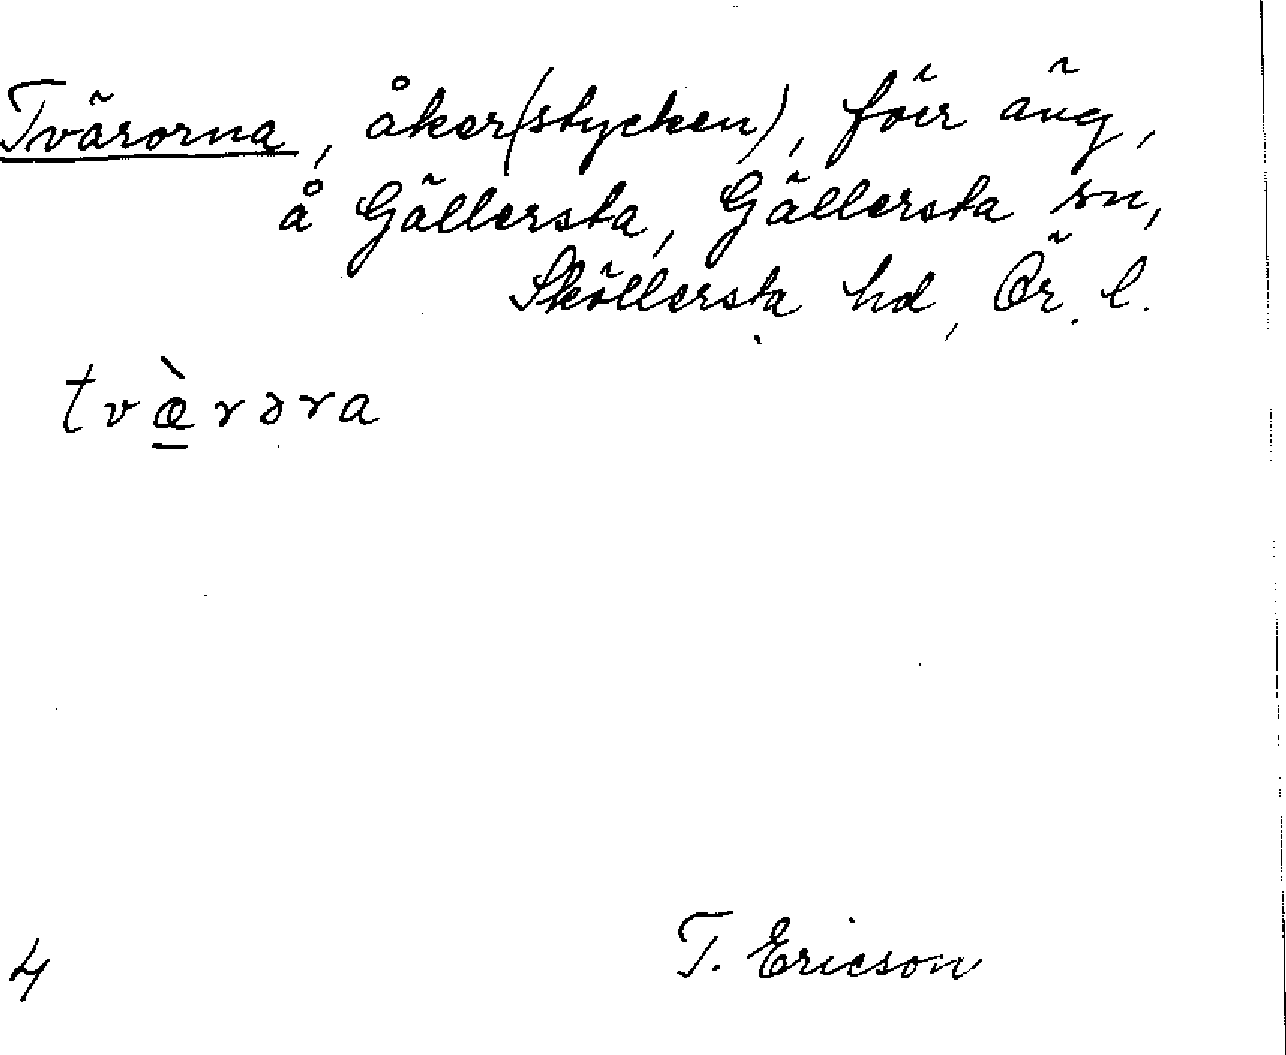 Tvärorna, åker(stycken), förr äng,
å Gällersta, Gällersta sn,
Sköllersta hd, Ör. l.
tvæ̀rəra
4
T. Ericson